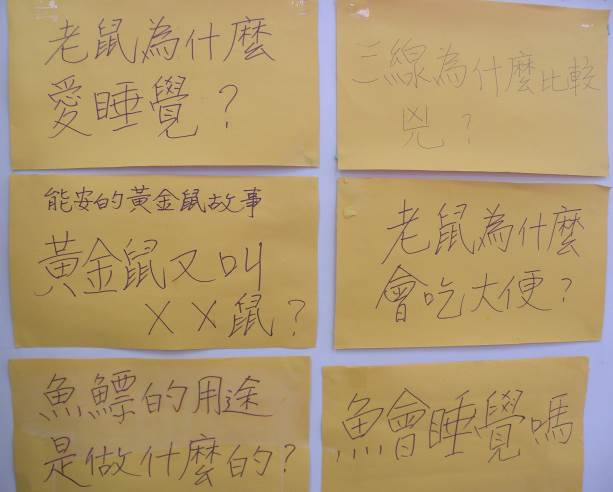 老鼠為什麼
愛睡覺？
三線為什麼比較
兇？
能安的黃金鼠故事
黃金鼠又叫
××鼠？
老鼠為什麼
會吃大便？
魚鰾的用途
是做什麼的？
魚會睡覺嗎